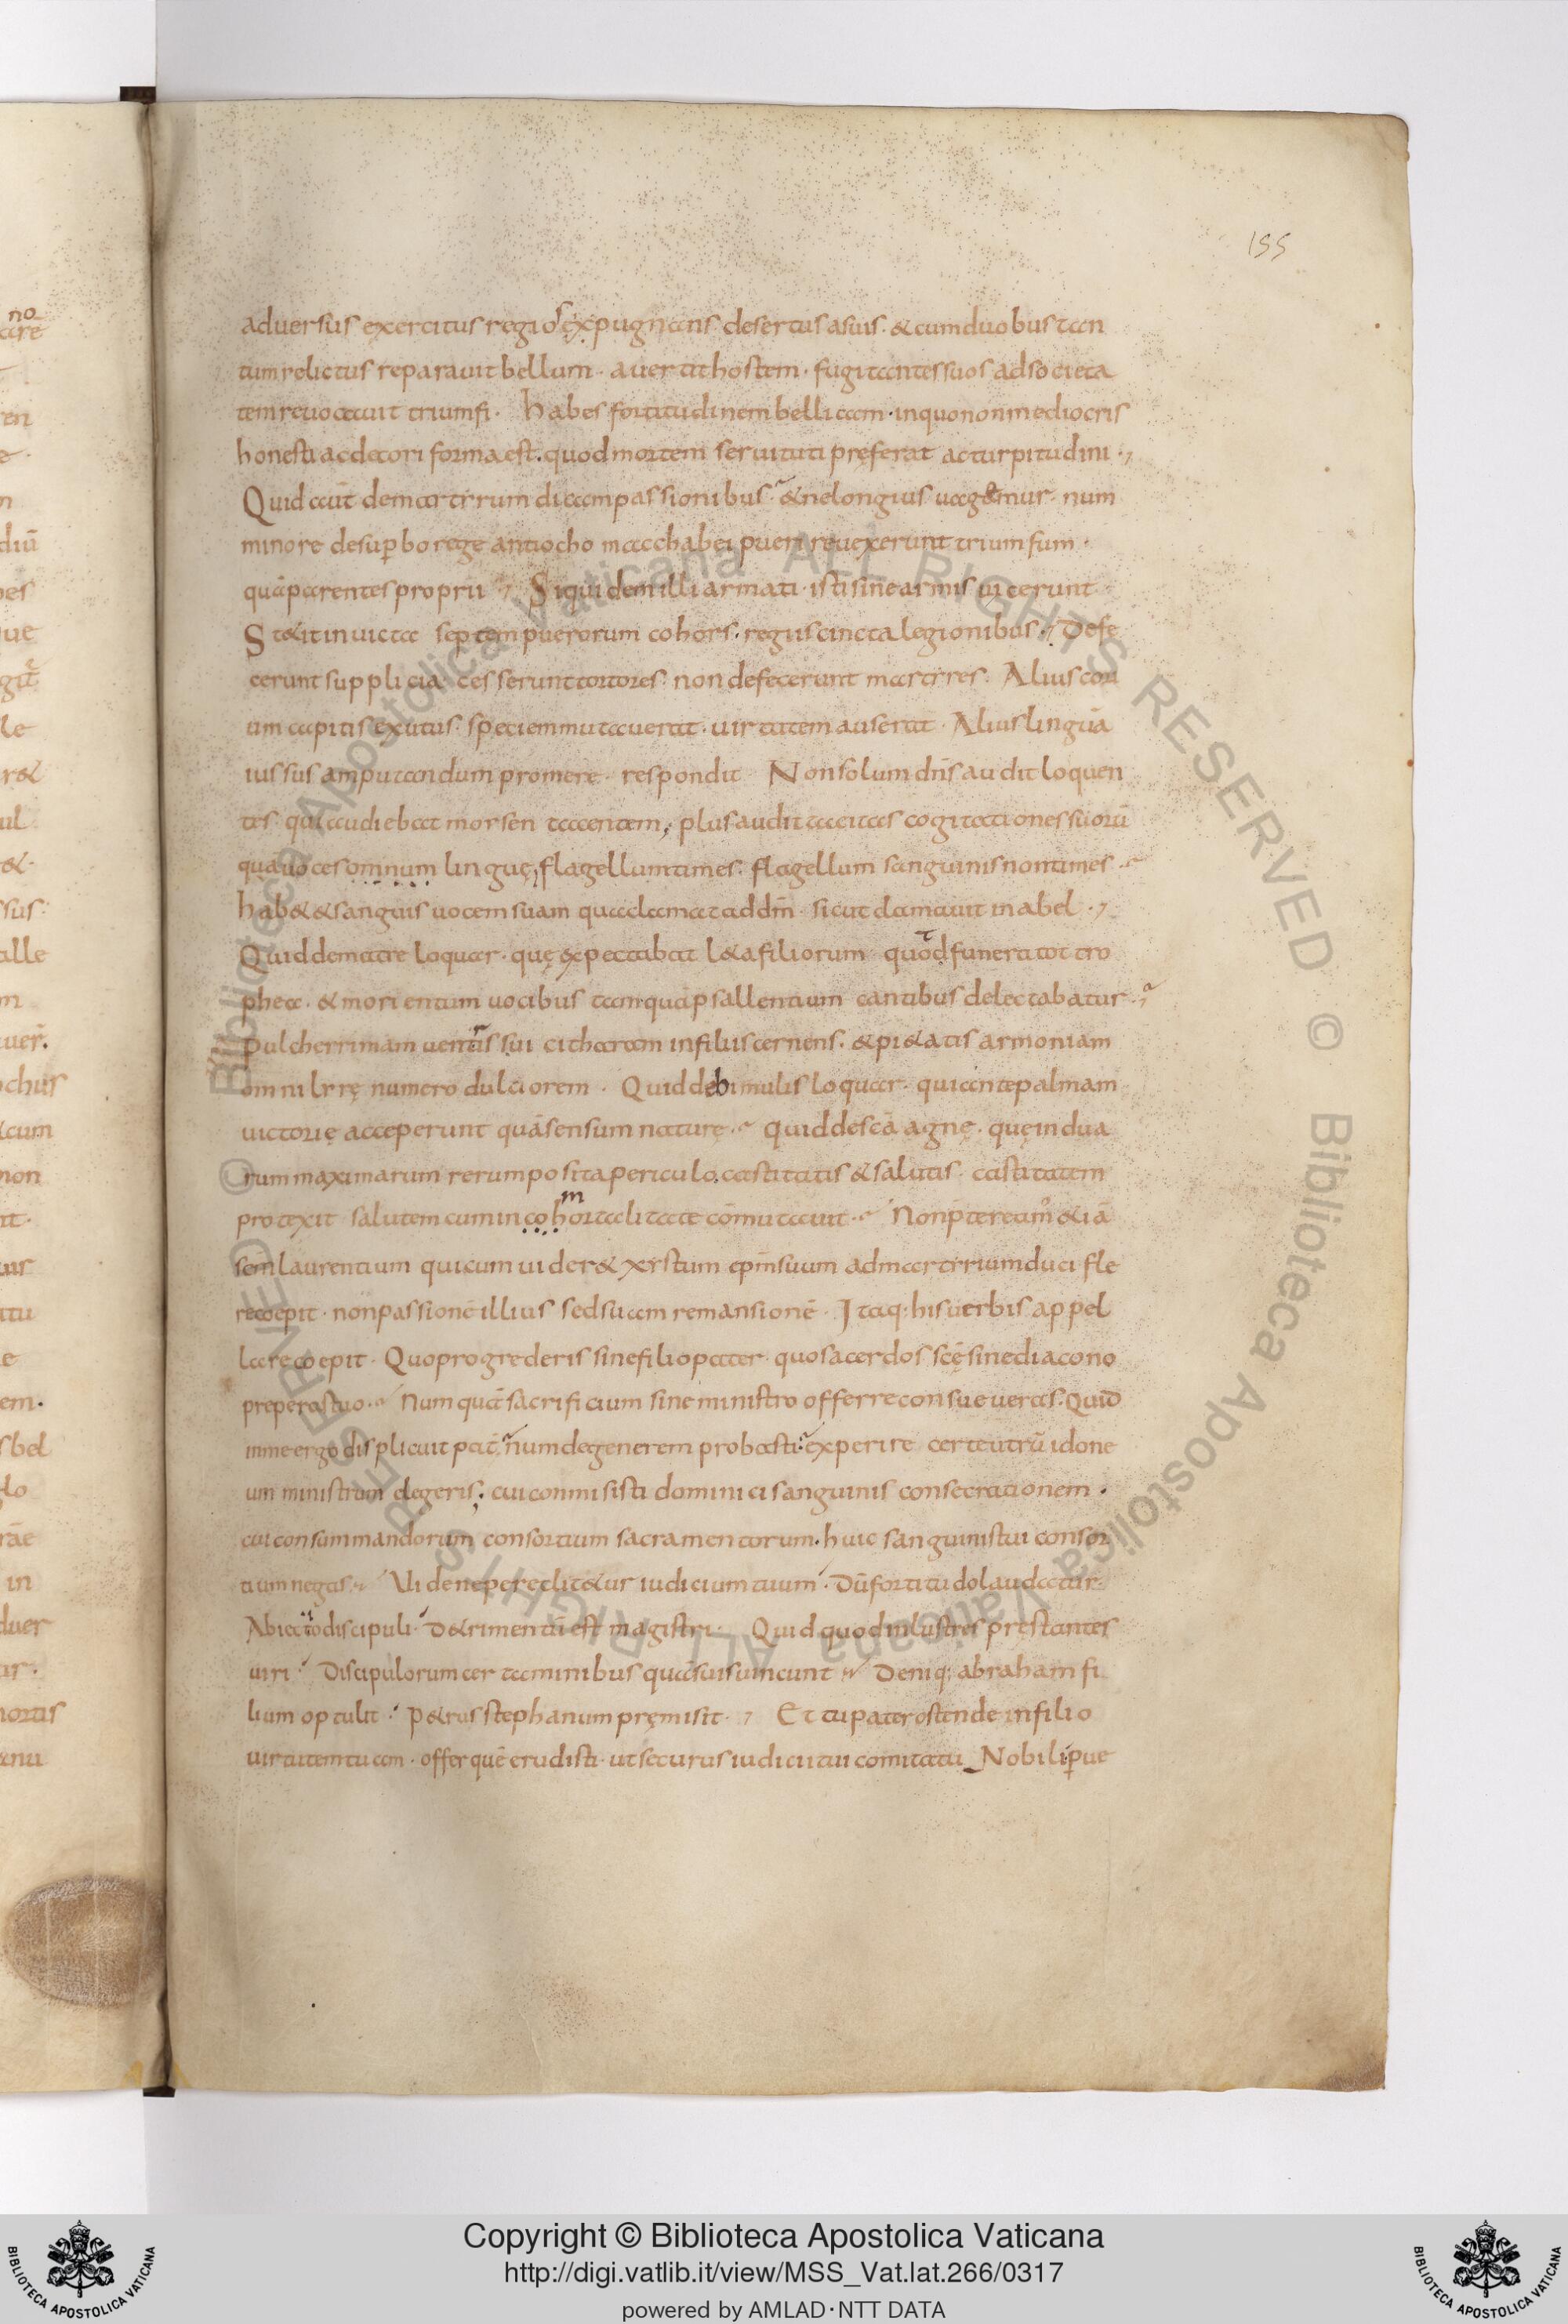 155
aduersus exercitus regios expugnans desertus asuis. & cum duobus tan
tum relictus reparauit bellum. auertit hostem. fugitantes suos adsocieta
tem reuocauit triumfi. Habes fortitudinem bellicam. inquo non mediocris
honesti ac decori forma est. quod mortem seruituti pręferat ac turpitudini.
Quid aūt demartyrum dicam passionibus. & ne longius uagemur. num
minore de sup̄bo rege antiocho macchabęi pueri reuexerunt triumfum.
quā parentes proprii. Siquidem illi armati. isti sine armis uicerunt
St&it inuicta septem puerorum cohors. regiis cincta legionibus. Defe
cerunt supplicia. cesserunt tortores. non defecerunt martyres. Alius cori
um capitis exutus. speciem mutauerat. uirtutem auserat. Alius linguā
iussus amputandum promere. respondit Non solum dn̄s audit loquen
tes. qui audiebat morsen tacentem; plus audit tacitas cogitationes suorū
quā uoces omnum linguę; flagellum times. flagellum sanguinis non times.
hab& & sanguis uocem suam qua clamat addm̄. sicut clamauit in abel.
Quid dematre loquar. quę expectabat l&a filiorum quod funera tot tro
phea. & morientum uocibus tam quā psallentium cantibus delectabatur.
pulcherrimam uentris sui citharam infiliis cernens. & pi&atis armoniam
omni lyrę numero dulciorem. Quid de bimulis loquar. qui ante palmam
victorię acceperunt quā sensum naturę. quid descā agnę. quę in dua
rum maximarum rerum posita periculo. castitatis & salutis. castitatem
protexit salutem cum in cohortalitate cōmutauit. Non p̄tereamꝰ & iā
scm̄ laurentium qui cum uider& xystum ep̄m suum ad martyrium duci fle
re coepit. non passionē illius sed suam remansionē. Itaq; his uerbis appel
lare coepit. Quo progrederis sine filio pater. quo sacerdos scę sine diacono
preperas tuo. Numquā sacrificium sine ministro offerre consueueras. Quid
in me ergo displicuit pat̄ num degenerem probasti. experire certe utrū idone
um ministrum elegeris; cui commisisti dominici sanguinis consecrationem.
cui consummandorum consortium sacramentorum. huic sanguinis tui consor
tium negas. Uide ne pereclit&ur iudicium tuum. Dū fortitudo laudatur.
Abiectio discipuli. D&rimentū est magistri. Quid quod inlustres prestantes
uiri. Discipulorum certaminibus quā suis uincunt Deniq; abraham fi
lium optulit. P&rus stephanum pręmisit. Et tu pater ostende in filio
uirtutem tuam. offer quē erudisti. ut securus iudicii tui comitatu Nobili p̄ue
Copyright © Biblioteca Apostolica Vaticana
http://digi.vatlib.it/view/MSS_Vat.lat.266/0317
powered by AMLAD·NTT DATA